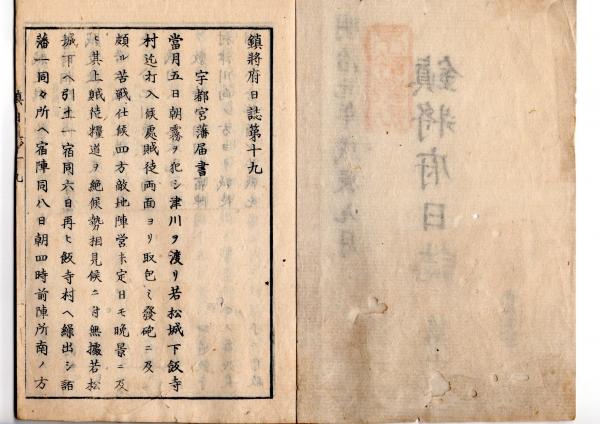 鎮將府日誌
明治元年戊辰九月
鎮將府日誌第十九
宇都宮藩届書
當月五日朝霧ヲ犯シ津川ヲ渡リ若松城下飯寺
村迄打入候處賊徒両面ヨリ取包ミ發砲ニ及
頗ル苦戦仕候四方敵地陣営未定日モ晩景ニ及
ヒ其上賊徒糧道ヲ絶候勢相見候ニ付無據若松
城下ヘ引上一宿同六日再ヒ飯寺村ヘ繰出シ諸
藩一同々所ヘ宿陣同八日朝四時前陣所南ノ方